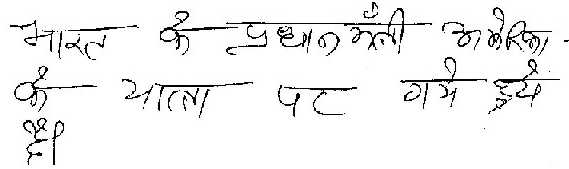 भारत के प्रधान मंत्री अमेरिका
के यात्रा पर गये हुये
हैं।